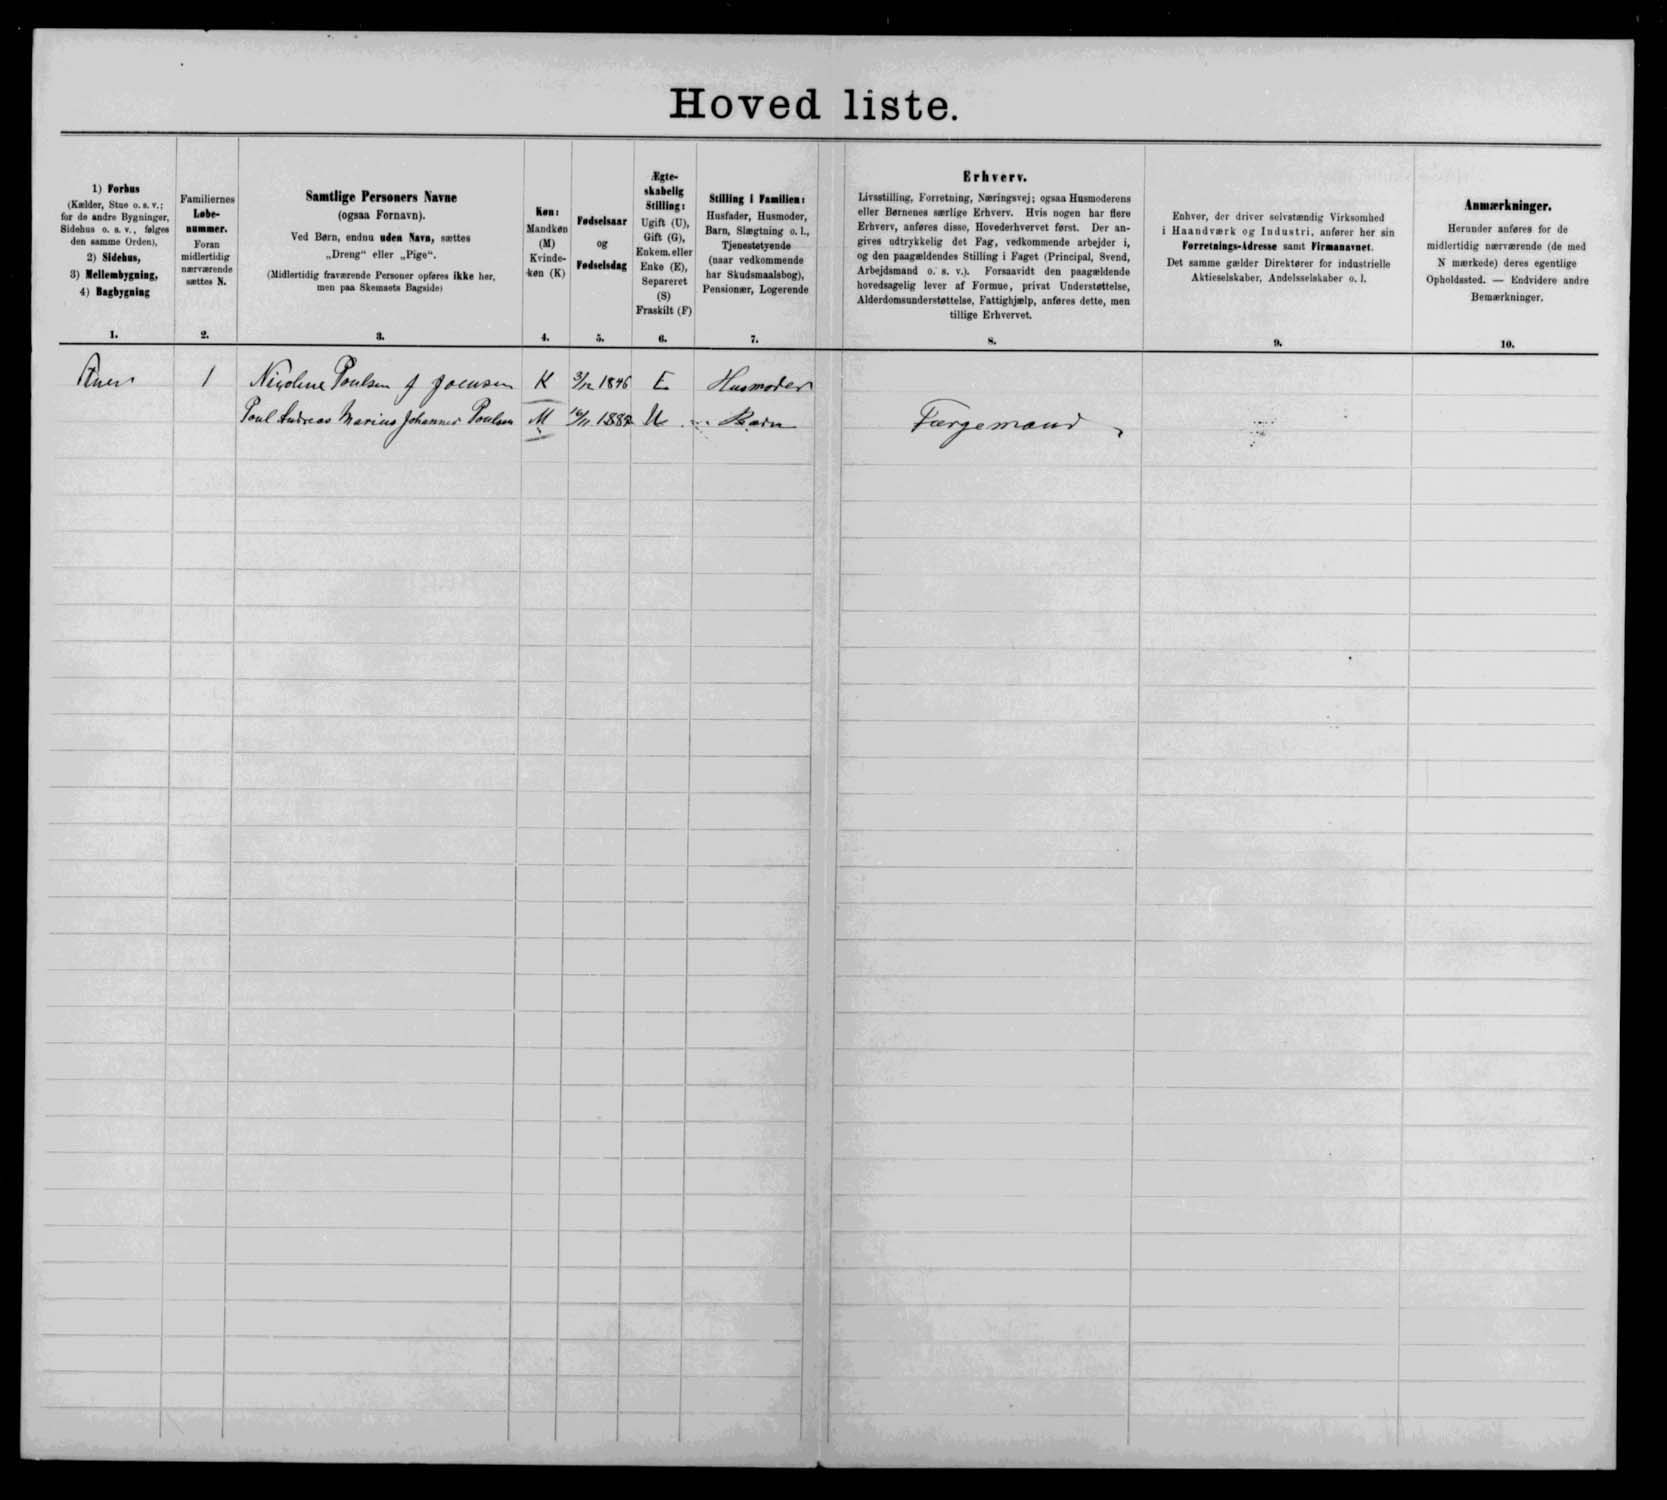 Hoved liste.
1) Forhus
(Kælder, Stue o. s. v.;
for de andre Bygninger,
Sidehus o. s. v., følges
den samme Orden),
2) Sidehus,
3) Mellembygning,
4) Bagbygning
1.
Familiernes
Løbe-
nummer.
Foran
midlertidig
nærværende
sættes N.
2.
Samtlige Personers Navne
(ogsaa Fornavn).
Ved Børn, endnu uden Navn, sættes
„Dreng“ eller „Pige“.
(Midlertidig fraværende Personer opføres ikke her,
men paa Skemaets Bagside)
3.
Køn:
Mandkøn
(M)
Kvinde-
køn (K)
4.
Fødselsaar
og
Fødselsdag
5.
Ægte-
skabelig
Stilling:
Ugift (U),
Gift (G),
Enkem. eller
Enke (E),
Separeret
(S)
Fraskilt (F)
6.
Stilling i Familien:
Husfader, Husmoder,
Barn, Slægtning o. l.,
Tjenestetyende
(naar vedkommende
har Skudsmaalsbog),
Pensionær, Logerende
7.
Erhverv.
Livsstilling, Forretning, Næringsvej; ogsaa Husmoderens
eller Børnenes særlige Erhverv. Hvis nogen har flere
Erhverv, anføres disse, Hovederhvervet først. Der an-
gives udtrykkelig det Fag, vedkommende arbejder i,
og den paagældendes Stilling i Faget (Principal, Svend,
Arbejdsmand o. s. v.). Forsaavidt den paagældende
hovedsagelig lever af Formue, privat Understøttelse,
Alderdomsunderstøttelse, Fattighjælp, anføres dette, men
tillige Erhvervet.
8.
Enhver, der driver selvstændig Virksomhed
i Haandværk og Industri, anfører her sin
Forretnings-Adresse samt Firmanavnet.
Det samme gælder Direktører for industrielle
Aktieselskaber, Andelsselskaber o. l.
9.
Anmærkninger.
Herunder anføres for de
midlertidig nærværende (de med
N mærkede) deres egentlige
Opholdssted. — Endvidere andre
Bemærkninger.
10.
1 Nicoline Poulsen f Joensen K 3/12 1846 E Husmoder
Poul Andreas Marius Johannes Poulsen M 16/11 U Barn Færgemand